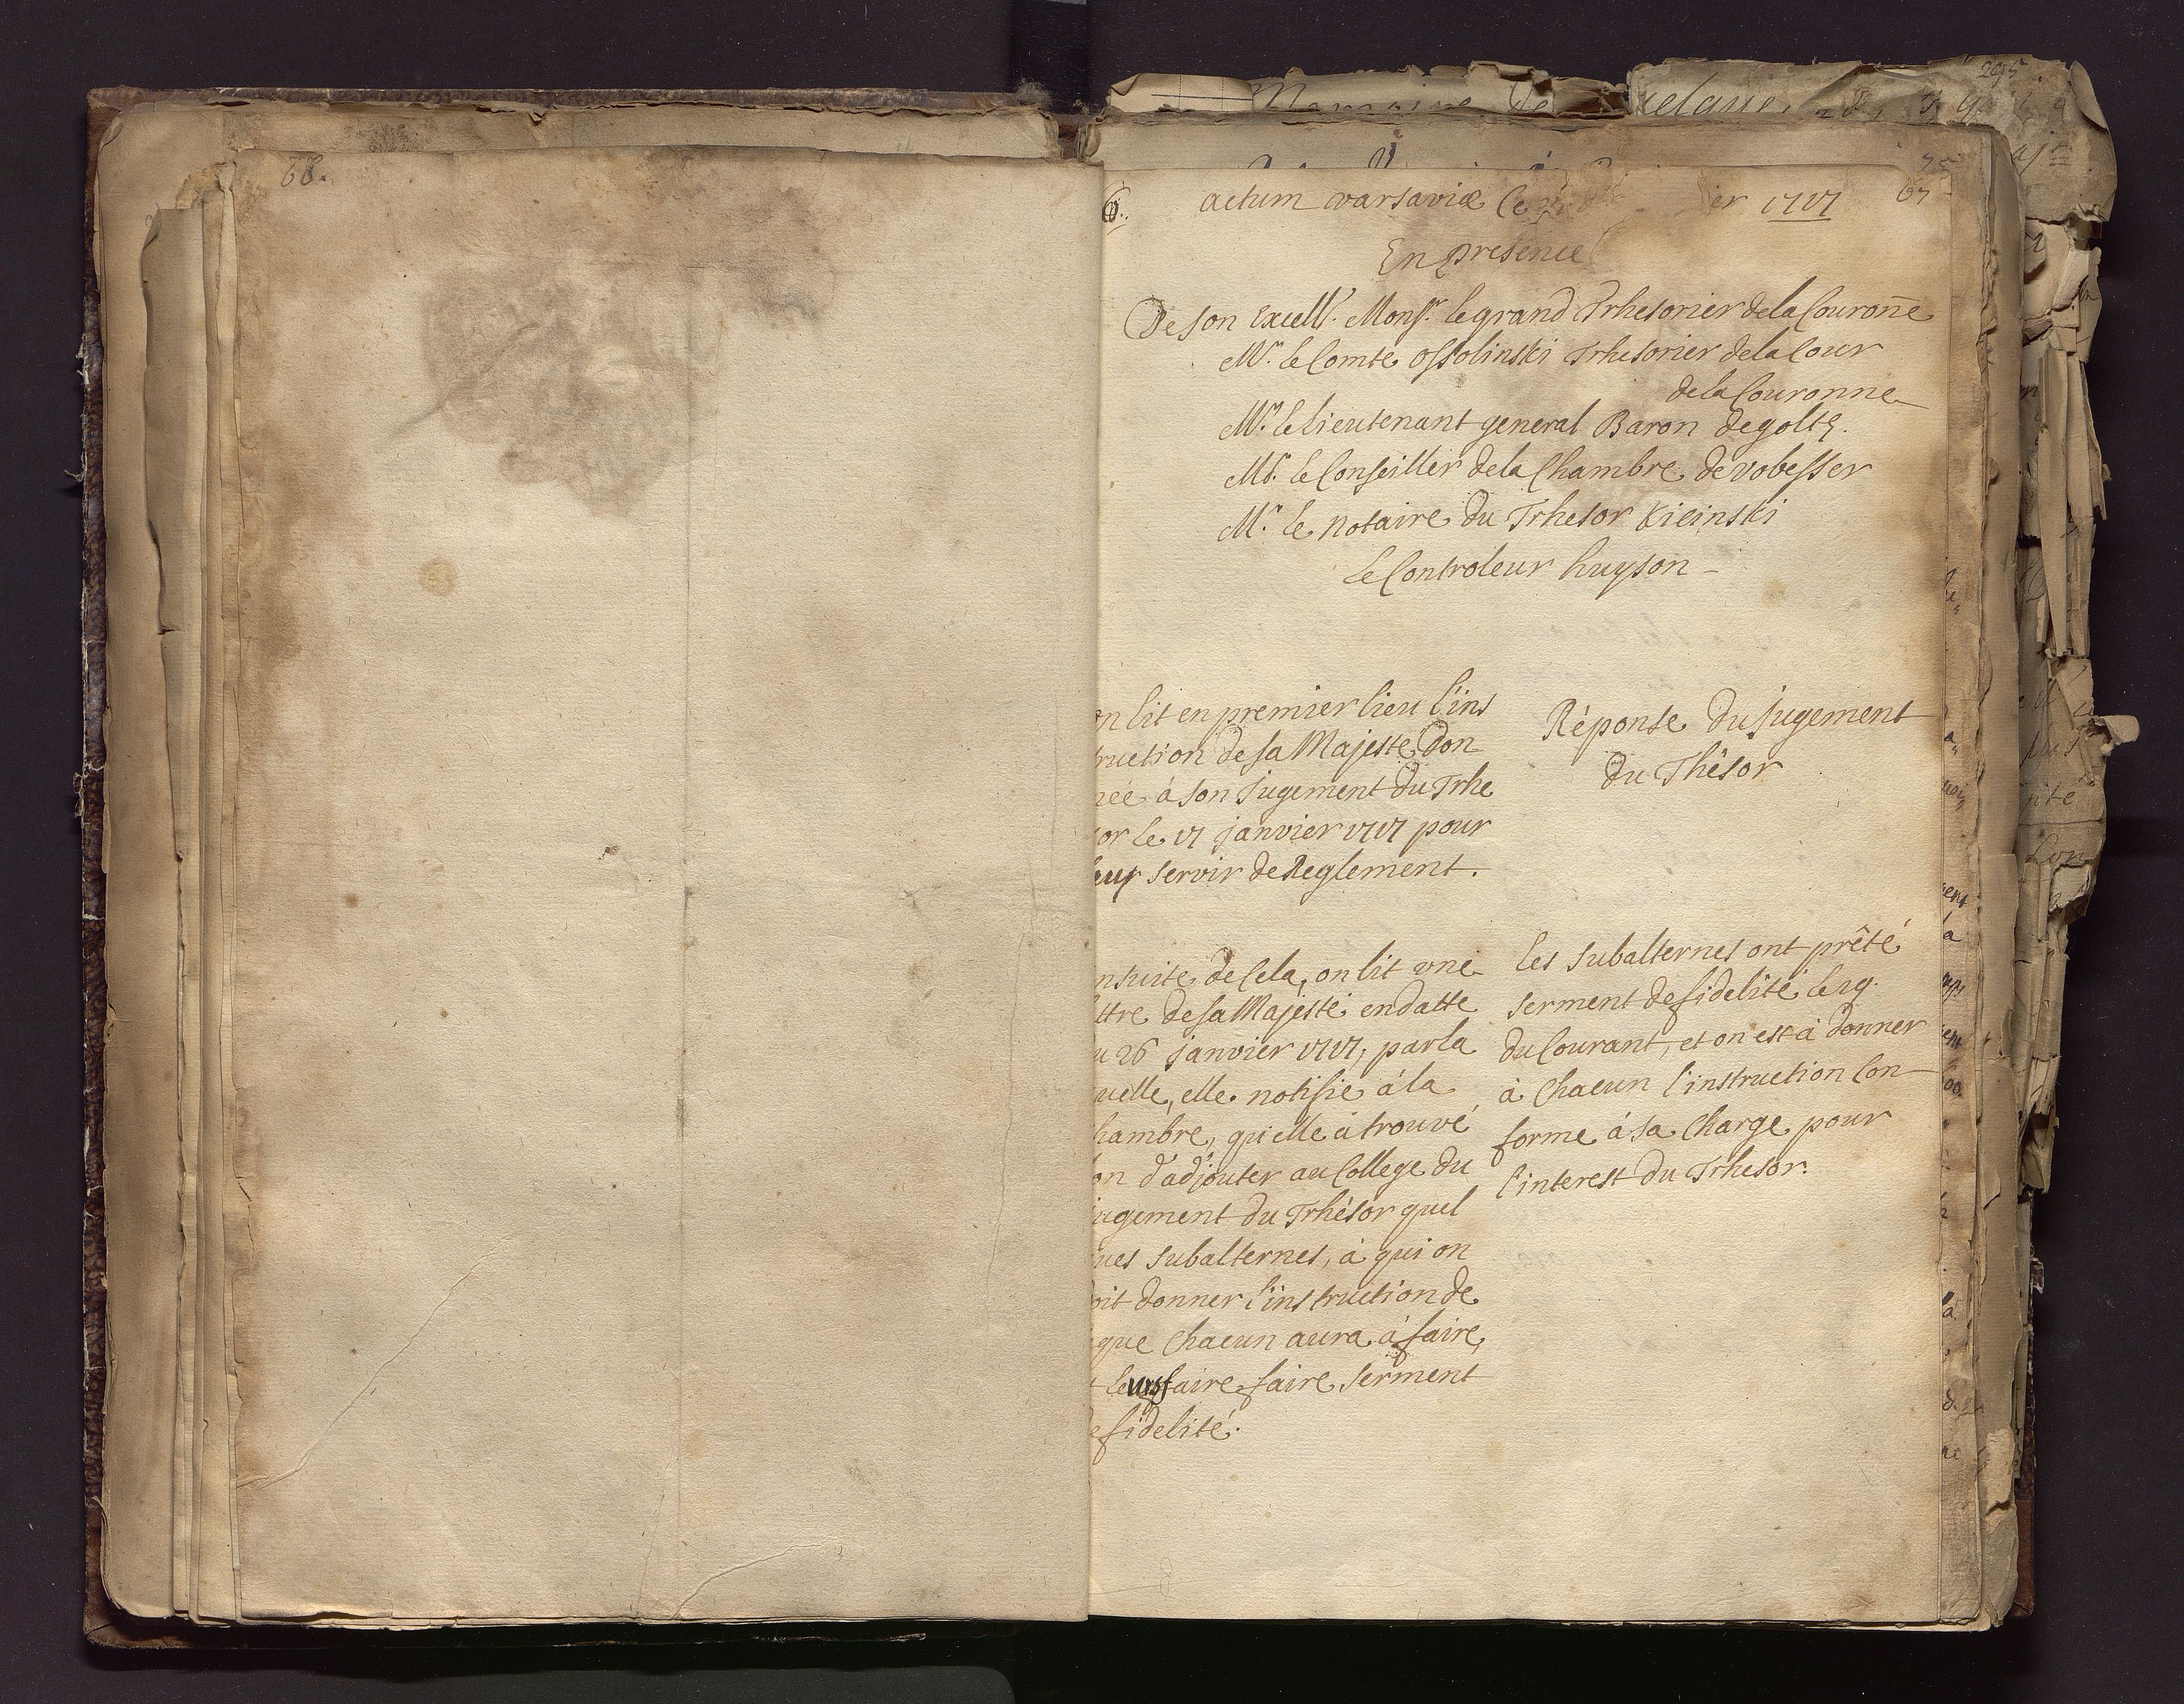 68.
67
6.
actum varsaviæ le er 1717
En presence
De son Excell. Monsr. le grand Trhesorier de la Couronne
Mr. le Comte Ossolinski Trhesorier de la Cour
de la Couronne
Mr. le lieutenant general Baron de goltz.
Mr. le Conseiller de la Chambre de vobesser
Mr. le notaire du Trhesor Kicinski
le Controleur huyson
on lit en premier lieu l'ins
truction de sa Majesté don
née à son jugement du Trhe
sor le 17 janvier 1717 pour
leur servir de Reglement.
nsuite de Cela, on lit une
ttre de sa Majesté en datte
u 26 janvier 1717, par la
uelle, elle notifie à la
hambre, qu'elle à trouvé
on d'adjouter au College du
ugement du Trhésor quel
ues subalternes, à qui on
oit donner l'instruction de
que Chacun aura à faire,
leur faire faire serment
e fidelité.
Réponse du jugement
du Thésor
les subalternes ont prêté
serment de fidelité le 19.
du Courant, et on est à donner
à Chacun l'instruction Con
forme à sa Charge pour
l'interest du Trhesor.